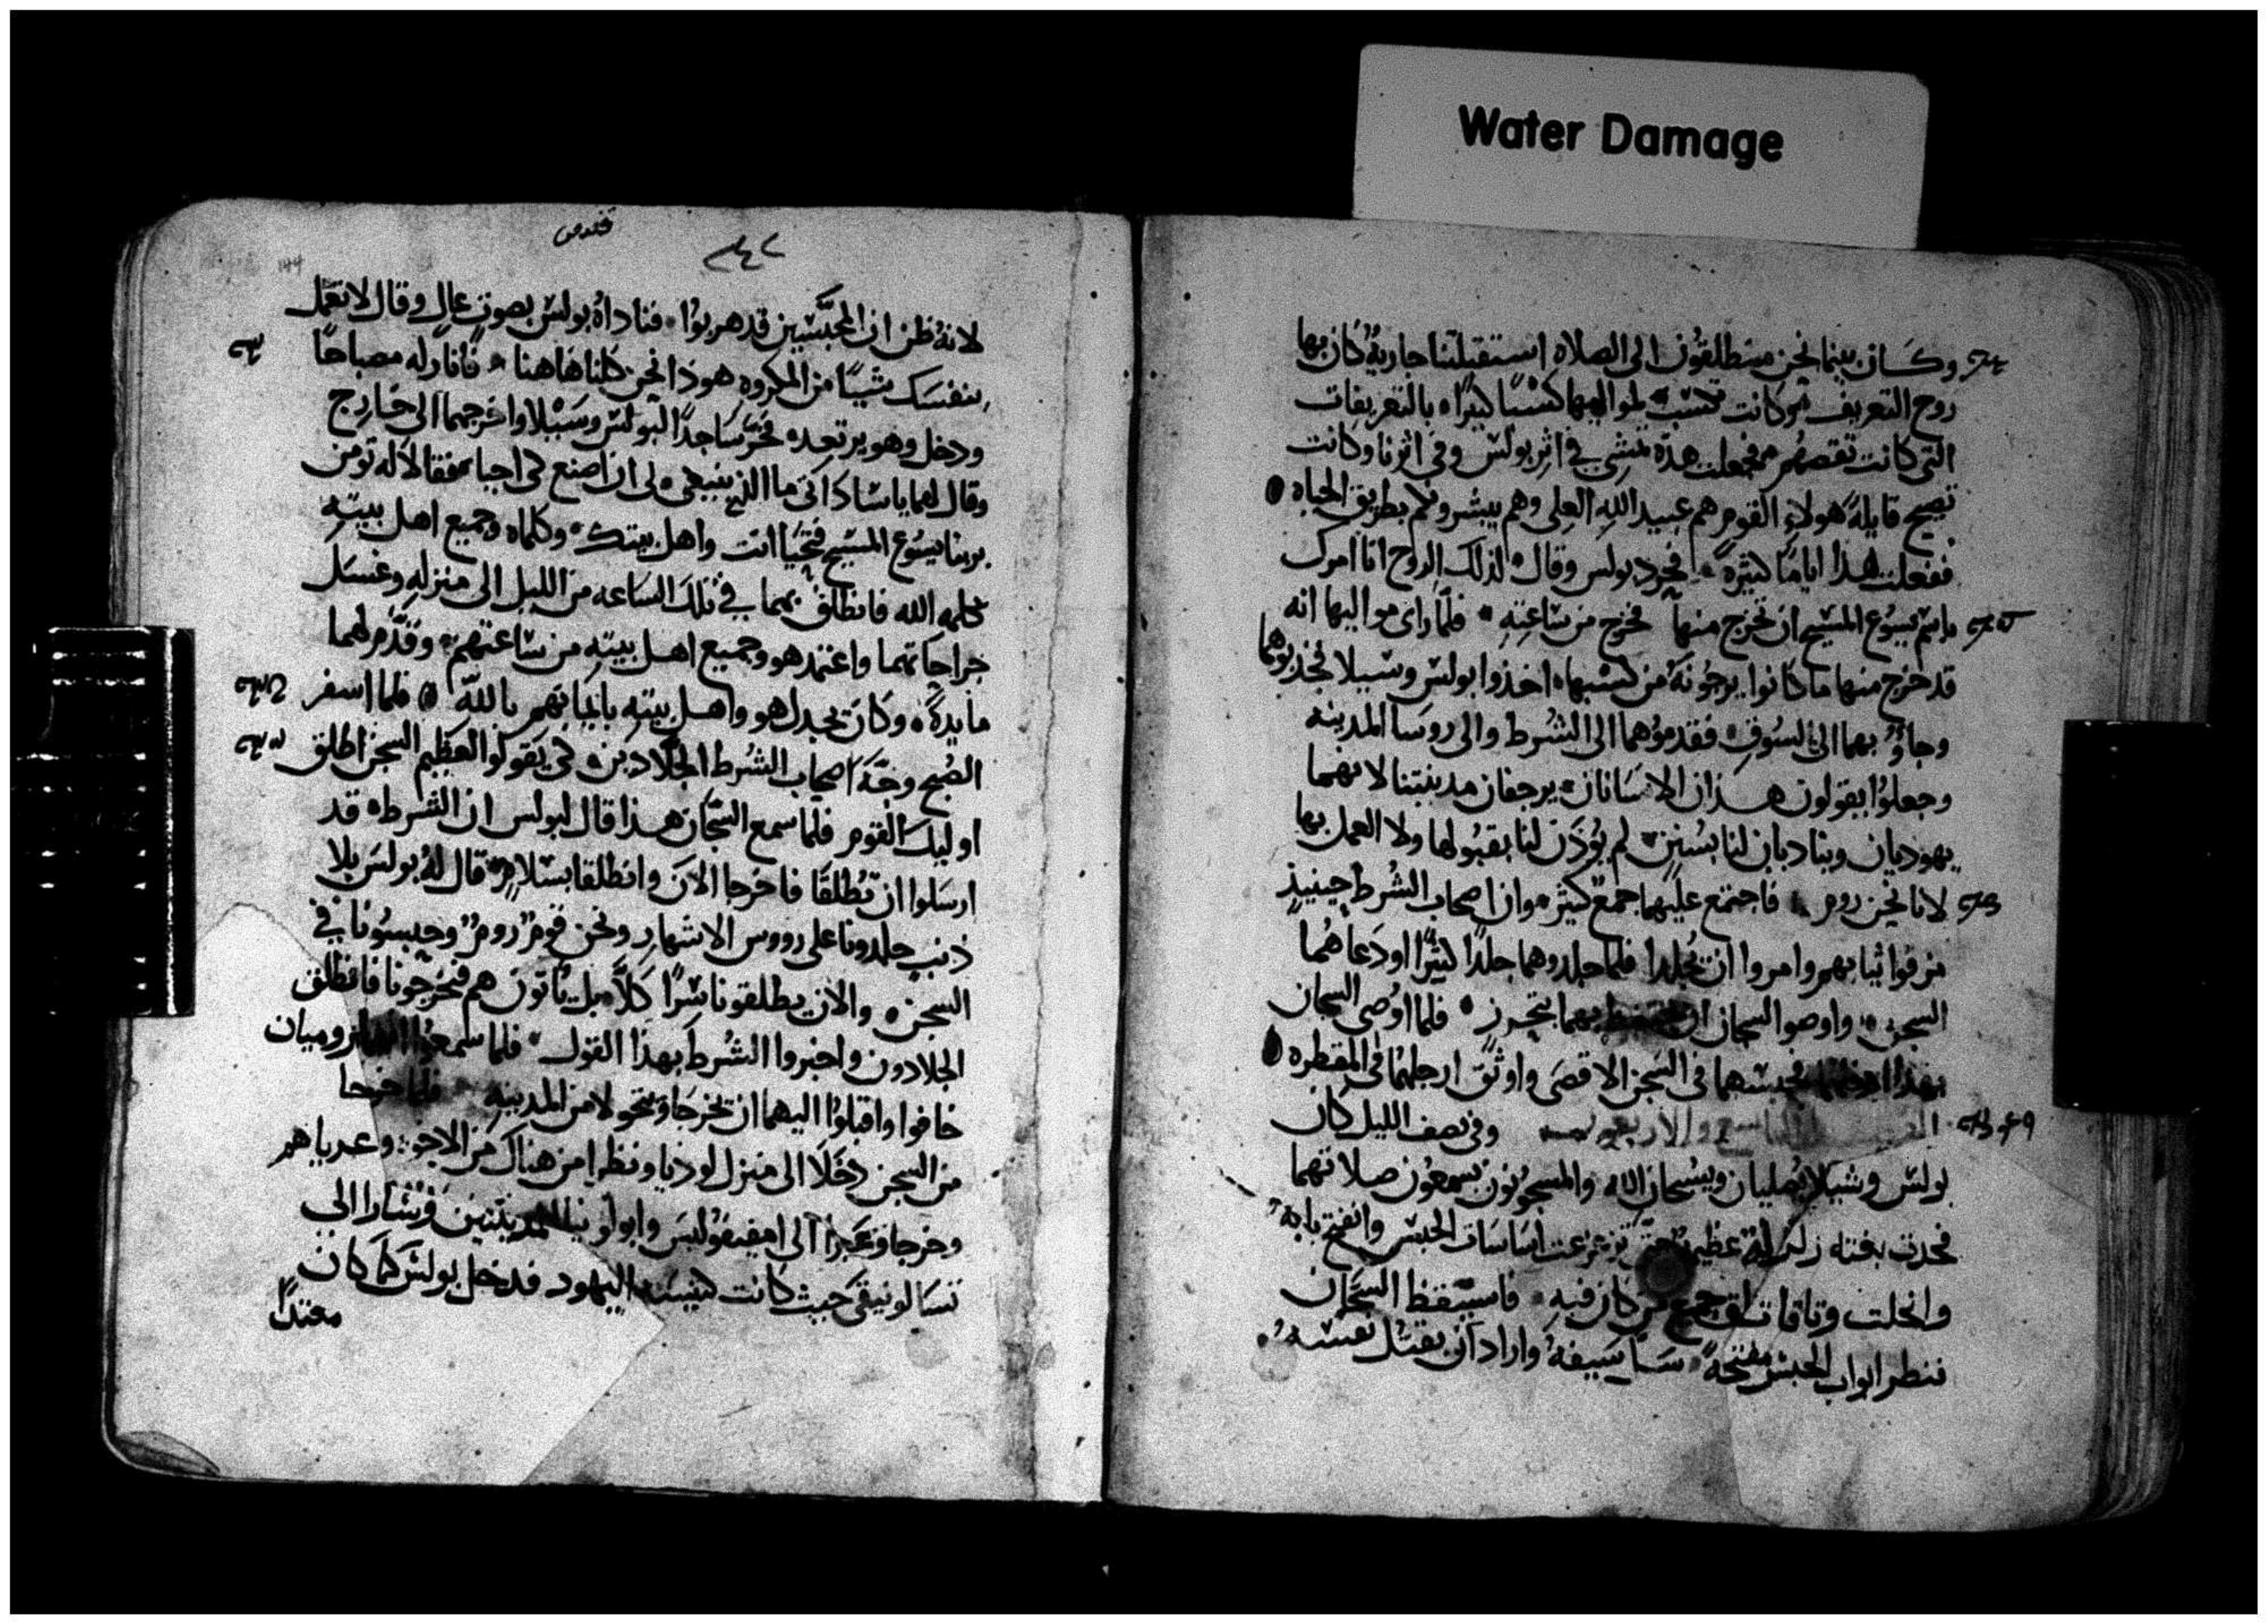 Water Damage
وكان بينما نحن منطلقون الى الصلاه استقبلتنا جاريةٌ كان بها
روح التعريف وكانت تكسب لمواليها كسبًا كبيرًا بالتعريفات
التى كانت تقصهم فجعلت هذه تمشى فى اثر بولس وفى اثرنا وكانت
تصيح قايلةً هولاء القوم هم عبيد الله العلى وهم يبشرونكم بطريق الحياه
ففعلت هذا ايامًا كثيره فحرد بولس وقال لذلك الروح انا امرك
باسم يسوع المسيح ان تخرج منها فخرج من ساعته فلما راى مواليها انه
قد خرج منها ما كانوا يرجونه من كسبها اخذوا بولس وسيلا فجذبوهما
وجاوُ بهما الى السوق فقدموهما الى الشُرط والى روسا المدينه
وجعلوا يقولون هذان الانسانان يرجفان مدينتنا لانهما
يهوديان ويناديان لنا بسُنن لم يُوذن لنا بقبولها ولا العمل بها
لانا نحن روم فاجتمع عليهما جمع كثير وان اصحاب الشُرط حينيذٍ
مزقوا ثيابهم وامروا ان يُجلدا فلما جلدوهما جلدًا كثيرًا اودعاهُما
السجن واوصوا السجان ان يحتفظ بهما بتحرز فلما اوصى السجان
بهذا ادخلهما فحبسهما فى السجن الاقصى واوثق ارجلهما فى المقطره
التاسع والاربعون وفى نصف الليل كان
بولس وشيلا يُصليان ويسبحان الله والمسجونون يسمعون صلاتهما
فحدث بغته زلزلة عظيمة حتى تزعزعت اساسات الحبس وانفتح بابه
وانحلت وثاقات جميع من كان فيه فاستيقظ السجان
فنظر ابواب الحبس مفتحةً سل سيفهُ واراد ان يقتل نفسهُ
144
لانهُ ظن ان المحبّسين قد هربوُا فناداهُ بولس بصوتٍ عالٍ وقال لا تعمل
بنفسك شيًا من المكروه هوذا نحن كلنا هاهنا فانار له مصباحًا
ودخل وهو يرتعد فخرّ ساجدًا لبولس وسيلا واخرجهما الى خارج
وقال لهما يا ساداتى ما الذى ينبغى لى ان اصنع لكى احيا فقالا له تومن
بربنا يسوع المسيح فتحيًا انت واهل بيتك وكلماه وجميع اهل بيته
بكلمه الله فانطلق بهما فى تلك الساعه من الليل الى منزله وغسل
جراحاتهما واعتمد هو وجميع اهل بيته من ساعتهم وقدّم لهما
مايدةً وكان يجدل هو واهل بيته بايمانهم بالله فلما اسفر
الصُبح وجّه اصحاب الشُرط الجلادين كى يقولوا لعظيم السجن اطلق
اوليك القوم فلما سمع السّجان هذا قال لبولس ان الشرط قد
ارسلوا ان تُطلقا فاخرجا الان وانطلقا بسلام قال لهُ بولس بلا
ذنب جلدونا على رووس الاشهار ونحن قومٌ رومٌ وحبسُونا فى
السجن والان يطلقونا سِرًا كلّا بل ياتون هم فيخرجونا فانطلق
الجلادون واخبروا الشُرط بهذا القول فلما سمعوا انهما روميان
خافوا واقبلوُا اليهما ان يخرجا ويتحولا من المدينه فلما خرجا
من السجن دخلا الى منزل لوديا ونظرا من هناك من الاخوه وعزياهم
وخرجا وعبرا الى امفيفوليس وابولونيا المدينتين وسارا الى
تسالونيقى حيث كانت كنيسة اليهود فدخل بولس كما كان
معتدًا